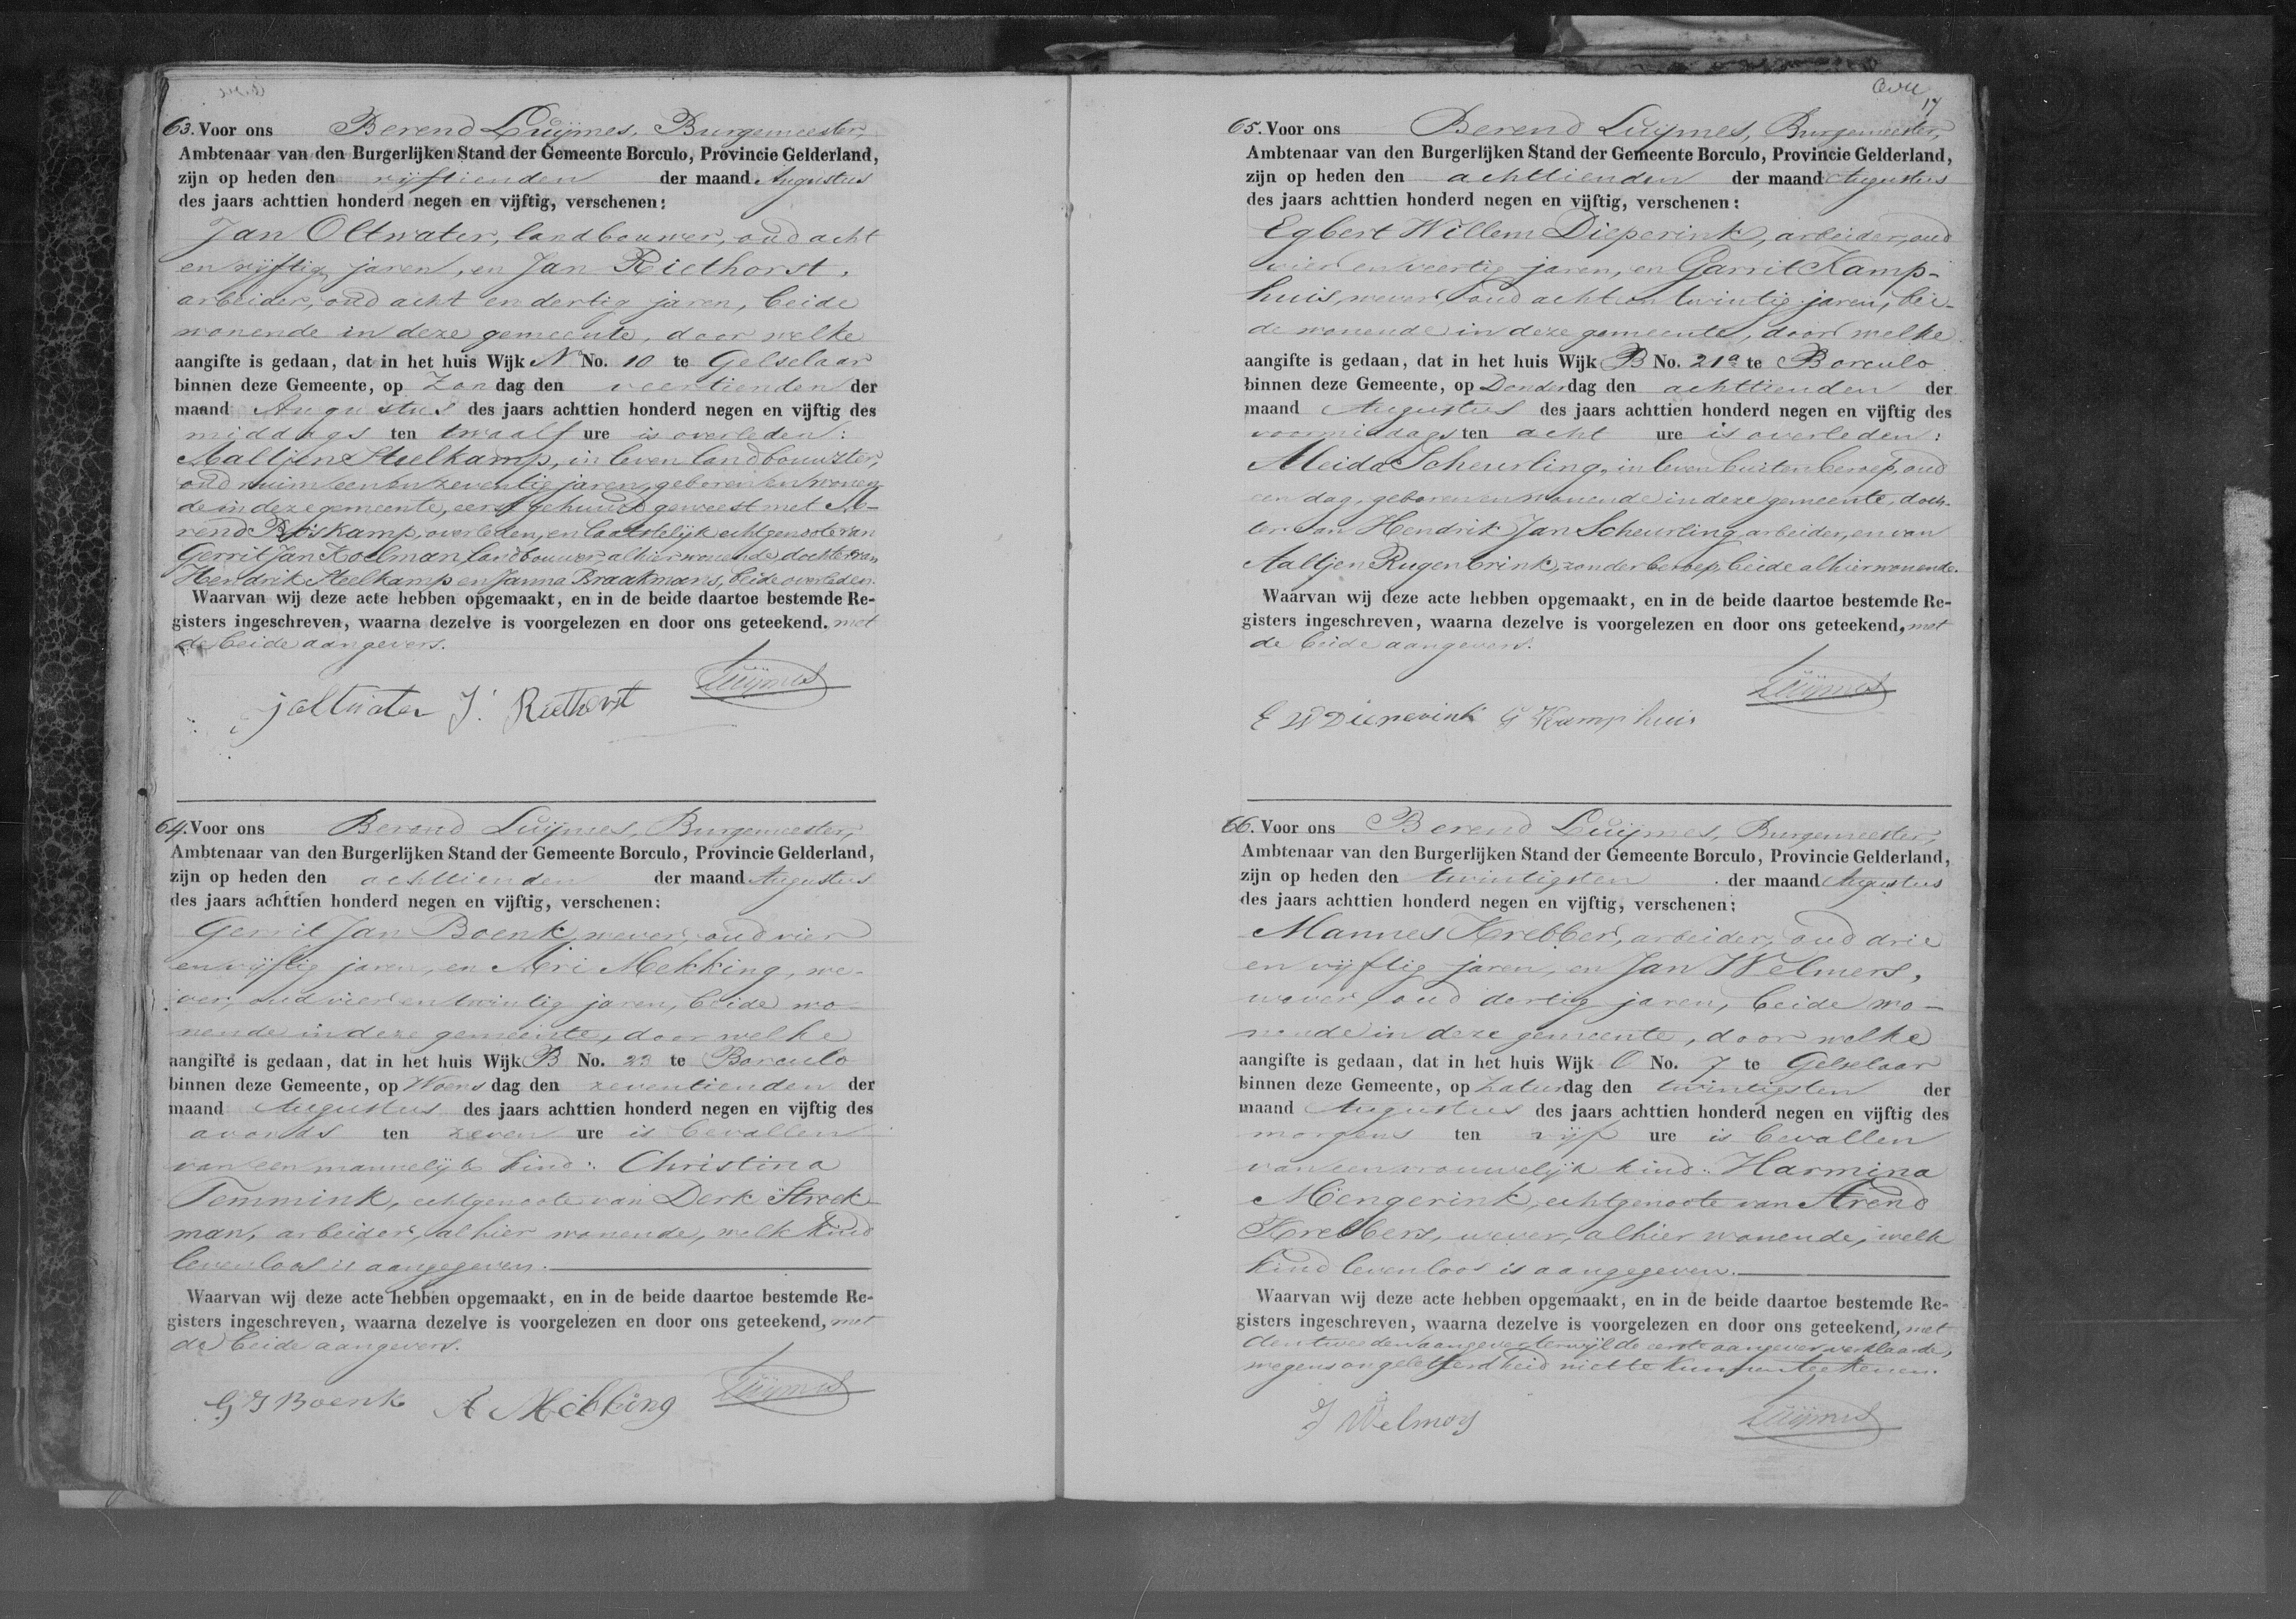 63. Voor ons Berend Luijmes, Burgemeester,
Ambtenaar van den Burgerlijken Stand der Gemeente Borculo, Provincie Gelderland,
zijn op heden den vijftienden der maand Augustus
des jaars achttien honderd negen en vijftig, verschenen:
Jan Oltwater, landbouwer, oud acht
en vijftig jaren, en Jan Riethorst,
arbeider, oud acht en dertig jaren, beide
wonende in deze gemeente, door welke
aangifte is gedaan, dat in het huis Wijk N No. 10 te Gelselaar
binnen deze Gemeente, op Zondag den veertienden der
maand Augustus des jaars achttien honderd negen en vijftig des
middags ten twaalf ure is overleden:
Aaltjen Steelkamp, in leven landbouwster,
oud ruim een en zeventig jaren, geboren en wonen-
de in deze gemeente, eerst gehuwd geweest met Be-
rend Boskamp, overleden, en laatstelijk echtgenoote van
Gerrit Jan Kollman landbouwer alhier wonende, dochter van
Hendrik Steelkamp en Janna Braakmans, beide overleden.
Waarvan wij deze acte hebben opgemaakt, en in de beide daartoe bestemde Re-
gisters ingeschreven, waarna dezelve is voorgelezen en door ons geteekend. met
de beide aangevers.
J oltwater J. Riethorst Luijmes
64. Voor ons Berend Luijmes, Burgemeester,
Ambtenaar van den Burgerlijken Stand der Gemeente Borculo, Provincie Gelderland,
zijn op heden den achttienden der maand Augustus
des jaars achttien honderd negen en vijftig, verschenen:
Gerrit Jan Boenk, wever, oud vier
en vijftig jaren, en Ari Mekking, we-
ver, oud vier en twintig jaren, beide wo-
nende in deze gemeente, door welke
aangifte is gedaan, dat in het huis Wijk B No. 23 te Borculo
binnen deze Gemeente, op Woensdag den zeventienden der
maand Augustus des jaars achttien honderd negen en vijftig des
avonds ten zeven ure is bevallen
van een mannelijk kind: Christina
Temmink, echtgenoote van Derk Strock-
man, arbeider, alhier wonende, welk kind
levenloos is aangegeven.
Waarvan wij deze acte hebben opgemaakt, en in de beide daartoe bestemde Re-
gisters ingeschreven, waarna dezelve is voorgelezen en door ons geteekend, met
de beide aangevers.
G J Boenk A Mekking Luijmes
17
65. Voor ons Berend Luijmes, Burgemeester,
Ambtenaar van den Burgerlijken Stand der Gemeente Borculo, Provincie Gelderland,
zijn op heden den achttienden der maand Augustus
des jaars achttien honderd negen en vijftig, verschenen:
Egbert Willem Dieperink, arbeider, oud
vier en veertig jaren, en Garrit Kamp-
huis, wever, oud acht en twintig jaren, bei-
de wonende in deze gemeente, door welke
aangifte is gedaan, dat in het huis Wijk B No. 21a te Borculo
binnen deze Gemeente, op Donderdag den achttienden der
maand Augustus des jaars achttien honderd negen en vijftig des
voormiddags ten acht ure is overleden:
Meida Scheurling, in leven buiten beroep, oud
een dag, geboren en wonende in deze gemeente, doch-
ter van Hendrik Jan Scheurling, arbeider, en van
Aaltjen Rugenbrink, zonder beroep, beide alhier wonende.
Waarvan wij deze acte hebben opgemaakt, en in de beide daartoe bestemde Re-
gisters ingeschreven, waarna dezelve is voorgelezen en door ons geteekend, met
de beide aangevers.
E W Dieperink G Kamphuis Luijmes
66. Voor ons Berend Luijmes, Burgemeester,
Ambtenaar van den Burgerlijken Stand der Gemeente Borculo, Provincie Gelderland,
zijn op heden den twintigsten der maand Augustus
des jaars achttien honderd negen en vijftig, verschenen:
Mannes Krebber, arbeider, oud drie
en vijftig jaren, en Jan Welmers,
wever, oud dertig jaren, beide wo-
nende in deze gemeente, door welke
aangifte is gedaan, dat in het huis Wijk O No. 7 te Gelselaar
binnen deze Gemeente, op Zaturdag den twintigsten der
maand Augustus des jaars achttien honderd negen en vijftig des
morgens ten vijf ure is bevallen
van een vrouwelijk kind: Harmina
Mengerink, echtgenoote van Arend
Krebbers, wever, alhier wonende, welk
kind levenloos is aangegeven.
Waarvan wij deze acte hebben opgemaakt, en in de beide daartoe bestemde Re-
gisters ingeschreven, waarna dezelve is voorgelezen en door ons geteekend, met
den tweeden aangever terwijl de eerste aangever verklaarde,
wegens ongeletterdheid niet te kunnen teekenen.
J Welmers Luijmes